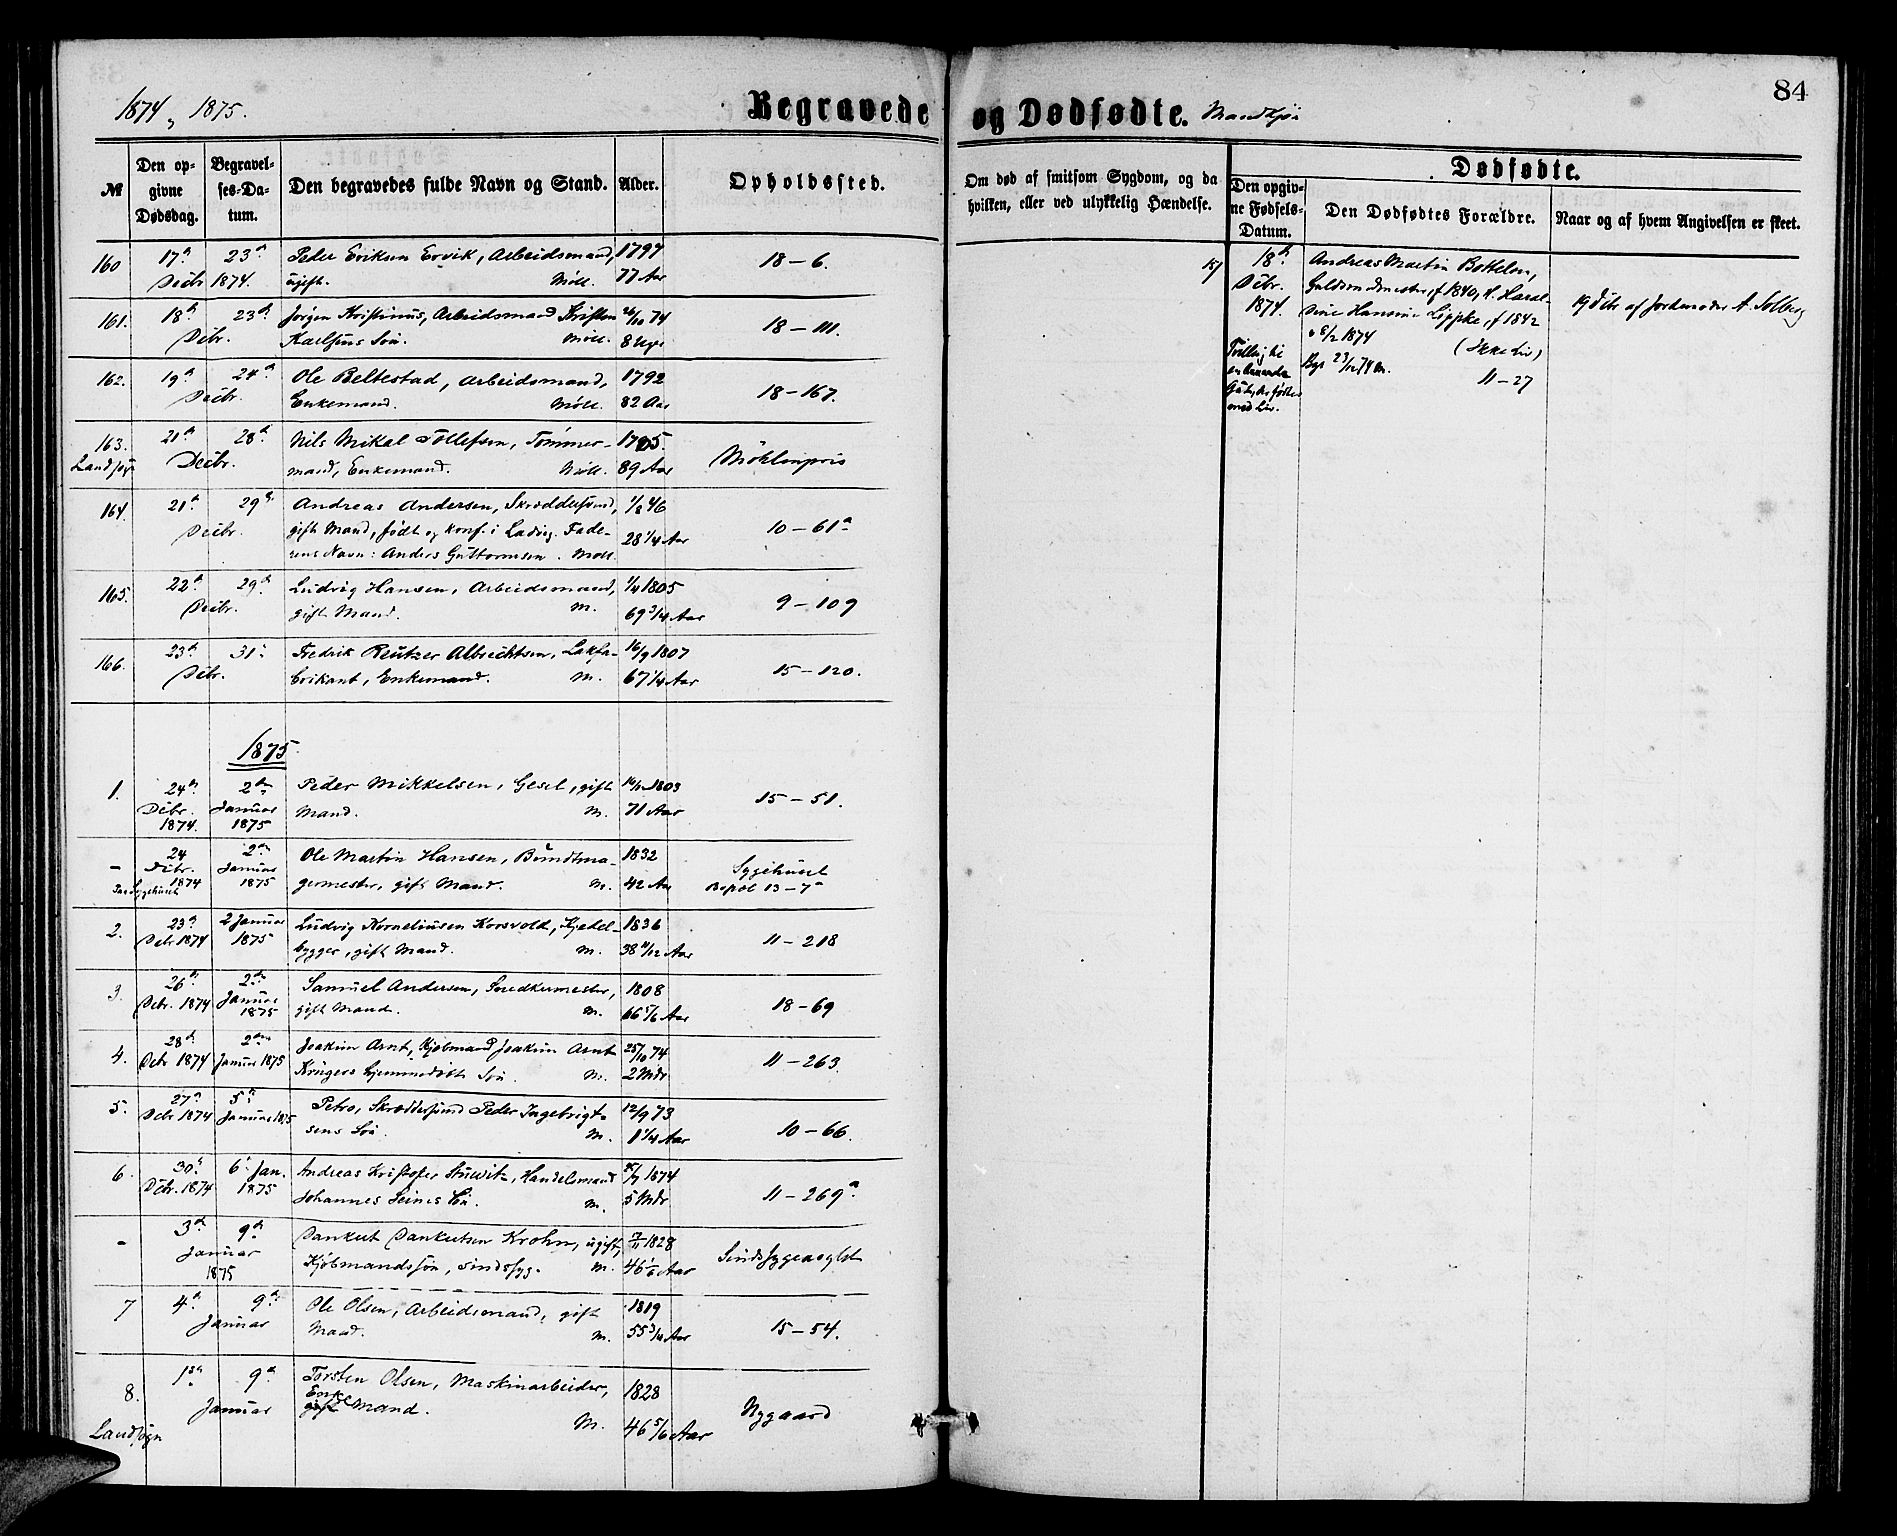 1874, 1875.
Begravede og Dødfødte. Mandkjøn
84
№
Den opgivne Dødsdag.
Begravelses-Datum.
Den begravedes fulde Navn og Stand.
Alder.
Opholdssted.
Om død af smitsom Sygdom, og da hvilken, eller ved ulykkelig Hændelse.
Dødfødte.
Den opgivne Fødsels-Datum.
Den Dødfødtes Forældre.
Naar og af hvem Angivelsen er skeet.
160 17de 23de Peder Eriksen Ervik, Arbeidsmand, 1797 18–6.
Decbr 1874. ugift. Möll. 77 Aar
161. 18de 23de Jørgen Kristinius, Arbeidsmand Kristen 74 18–111.
Decbr. Karlsens Søn. Möll. 8 Uger
162. 19de 24de Ole Beltestad, Arbeidsmand, 1792 18–167.
Decbr. Enkemand. Möll. 82 Aar
163. 21de 28de Nils Mikal Tollefsen, Tømmer-
Landsogn Decbr. mand, Enkemand. Möll. 89 Aar Möhlenpris
164. 21de 29de Andreas Andersen, Skræddersvend, 46
Decbr. gift Mand, født og konf. i Ladvig. Fade- 28 1/4 Aar 10–61a
rens Navn: Anders Guttormsen. Möll.
165. 22de 29de Ludvig Hansen, Arbeidsmand, 1/4 1805
Decbr. gift Mand. M. 69 3/4 Aar 9–109
166. 23de 31. Fredrik Reutzer Albrechtsen, Lakfa- 16/9 1807
Decbr. brikant, Enkemand. M. 67 1/4 Aar 15–120.
1875.
1. 24de 2den Peder Mikkelsen, Gesel, gift 1803
Decbr. Januar Mand. M. 71 Aar 15–51.
1874. 1875
– 24 2den Ole Martin Hansen, Bundtma- 1832 Sygehuset
Decbr. Januar germester, gift Mand. M. 42 Aar Bopæl 13–7a
1874 1875
Sygehuset
2. 23de 2 Januar Ludvig Korneliusen Korsvold, Kjedel- 1836
Decbr 1874 1875 bygger, gift Mand. M. 38 Aar 11–218
3. 26de 2den Samuel Andersen, Snedkermester, 1808
Decbr. 1874 Januar 1875 gift Mand. M. 66 5/6 Aar 18–69
4. 28de 2den Joakim Arnt, Kjøbmand Joakim Arnt 25/10 74
Decbr 1874 Januar 1875 Krügers hjemmedøbte Søn. M. 2 Mdr 11–263.
5. 27de 5te Petro, Skræddersvend Peder Ingebrigt- 12/9 73
Decbr 1874 Januar 1875 sens Søn. M. 1 1/4 Aar 10–66.
6. 30te 6te Jan. Andreas Kristofer Stuwitz, Handelsmand 1874
Decbr. 1874 1875 Johannes Seines Søn. M. 5 Mdr 11–269a
– 3de 9de Dankert Dankertsen Krohn, ugift, 1828
Januar Kjøbmandssøn, sindssyg. M. 46 1/6 Aar Sindssygeasylet
1875
7 4de 9de Ole Olsen, Arbeidsmand, gift 1819
Januar Mand. M. 55 3/4 Aar 15–54.
8. 1ste 9de Torsten Olsen, Maskinarbeider, 1828
Landsogn Januar gift Enkemand. M. 46 5/6 Aar Nygaard
18de Andreas Martin Bottelsen,
Decbr. Guldsmedmester, f 1840,
1874. Hansine Lippke, f 1842
1874 (Ikke Liv)
Bgr 23/12 74 M. 11–27
Tvilling til
med Liv.
19 Decbr af Jordmoder A. Solberg